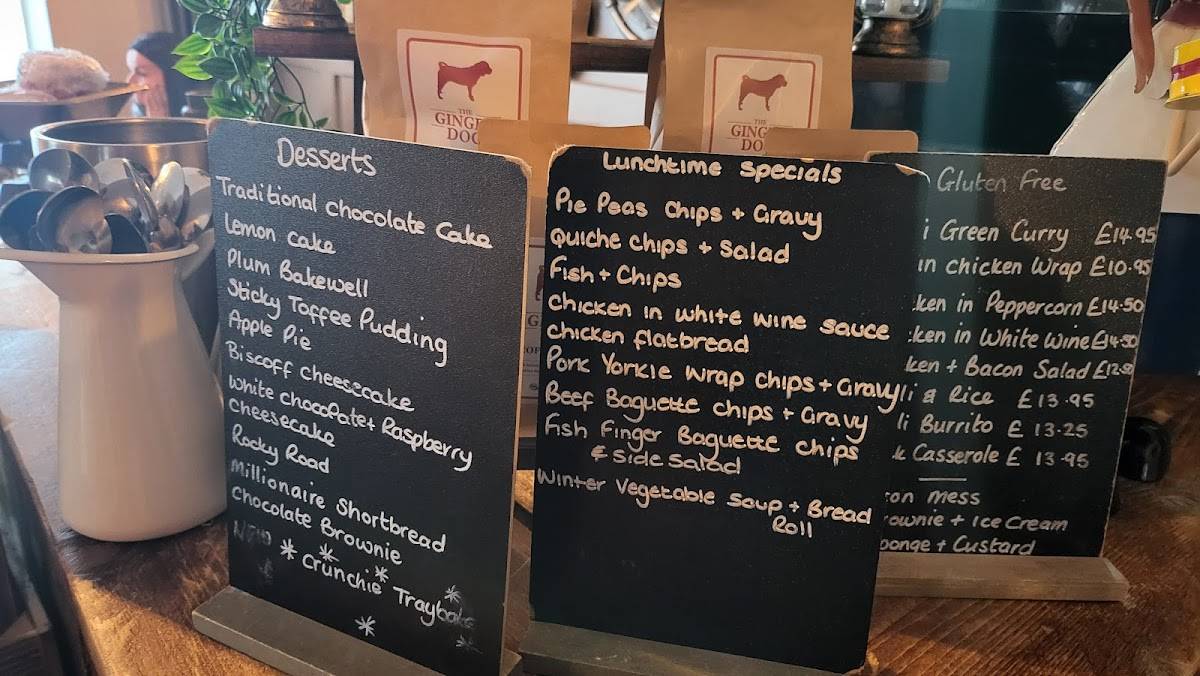 THE
GINGE
DOG
THE
GINGE
DO
Desserts
Traditional Chocolate Cake
Lemon Cake
Plum Bakewell
Sticky Toffee Pudding
Apple Pie
Biscoff Cheesecake
White chocolate + Raspberry
Cheesecake
Rocky Road
Millionaire Shortbread
Chocolate Brownie
New
Crunchie Traybake
Lunchtime Specials
Pie Peas Chips + Gravy
Quiche Chips + Salad
Fish + Chips
Chicken in white wine sauce
Chicken flatbread
Pork Yorkie Wrap chips + Gravy
Beef Baguette Chips + Gravy
Fish Finger Baguette chips
& side salad
Winter Vegetable Soup + Bread
Roll
Gluten Free
i Green Curry £14.95
in chicken Wrap £10.95
ken in Peppercorn £14.50
ken in White Wine £14.50
ken + Bacon Salad £12.50
li & Rice £13.95
li Burrito £13.25
k Casserole £13.95
on mess
ownie + Ice Cream
ponge + Custard